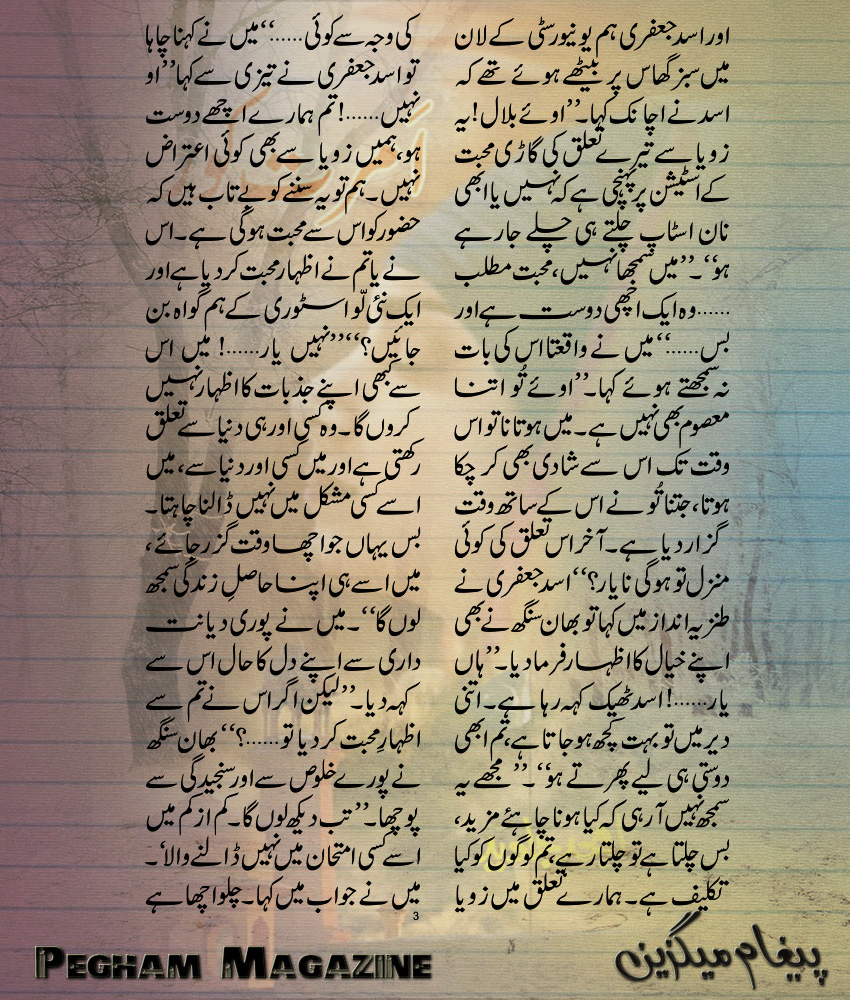 اور اسد جعفری ہم یونیورسٹی کے لان
میں سبز گھاس پر بیٹھے ہوئے تھے کہ
اسد نے اچانک کہا۔’’اوئے بلال!یہ
زویا سے تیرے تعلق کی گاڑی محبت
کے اسٹیشن پر پہنچی ہے کہ نہیں یا ابھی
نان اسٹاپ چلتے ہی چلے جا رہے
ہو‘‘۔’’میں سمجھا نہیں، محبت مطلب
......وہ ایک اچھی دوست ہے اور
بس......‘‘میں نے واقعتا اس کی بات
نہ سمجھتے ہوئے کہا۔’’اوئے تُو اتنا
معصوم بھی نہیں ہے۔میں ہوتا نا تو اس
وقت تک اس سے شادی بھی کر چکا
ہوتا، جتنا تُو نے اس کے ساتھ وقت
گزار دیا ہے۔آخر اس تعلق کی کوئی
منزل تو ہو گی نا یار؟‘‘اسد جعفری نے
طنزیہ انداز میں کہا تو بھان سنگھ نے بھی
اپنے خیال کا اظہار فرما دیا۔’’ہاں
یار......!اسد ٹھیک کہہ رہا ہے۔اتنی
دیر میں تو بہت کچھ ہو جاتا ہے،تم ابھی
دوستی ہی لیے پھرتے ہو‘‘۔’’مجھے یہ
سمجھ نہیں آ رہی کہ کیا ہونا چاہئے مزید،
بس چلتا ہے تو چلتا رہے،تم لوگوں کو کیا
تکلیف ہے۔ہمارے تعلق میں زویا
کی وجہ سے کوئی......‘‘میں نے کہنا چاہا
تو اسد جعفری نے تیزی سے کہا’’او
نہیں......!تم ہمارے اچھے دوست
ہو،ہمیں زویا سے بھی کوئی اعتراض
نہیں۔ہم تو یہ سننے کو بے تاب ہیں کہ
حضور کو اس سے محبت ہو گی ہے۔اس
نے یا تم نے اظہار محبت کر دیا ہے اور
ایک نئی لّو اسٹوری کے ہم گواہ بن
جائیں؟‘‘’’نہیں یار......! میں اس
سے کبھی اپنے جذبات کا اظہار نہیں
کروں گا۔وہ کسی اور ہی دنیا سے تعلق
رکھتی ہے اور میں کسی اور دنیا سے، میں
اسے کسی مشکل میں نہیں ڈالنا چاہتا۔
بس یہاں جو اچھا وقت گزر جائے،
میں اسے ہی اپنا حاصلِ زندگی سمجھ
لوں گا‘‘۔میں نے پوری دیانت
داری سے اپنے دل کا حال اس سے
کہہ دیا۔’’لیکن اگر اس نے تم سے
اظہارِ محبت کر دیا تو......؟‘‘بھان سنگھ
نے پورے خلوص سے اور سنجیدگی سے
پوچھا۔’’تب دیکھ لوں گا۔کم از کم میں
اسے کسی امتحان میں نہیں ڈالنے والا‘۔
میں نے جواب میں کہا۔چلو اچھا ہے
3
PEGHAM MAGAZINE
پیغام میگزین